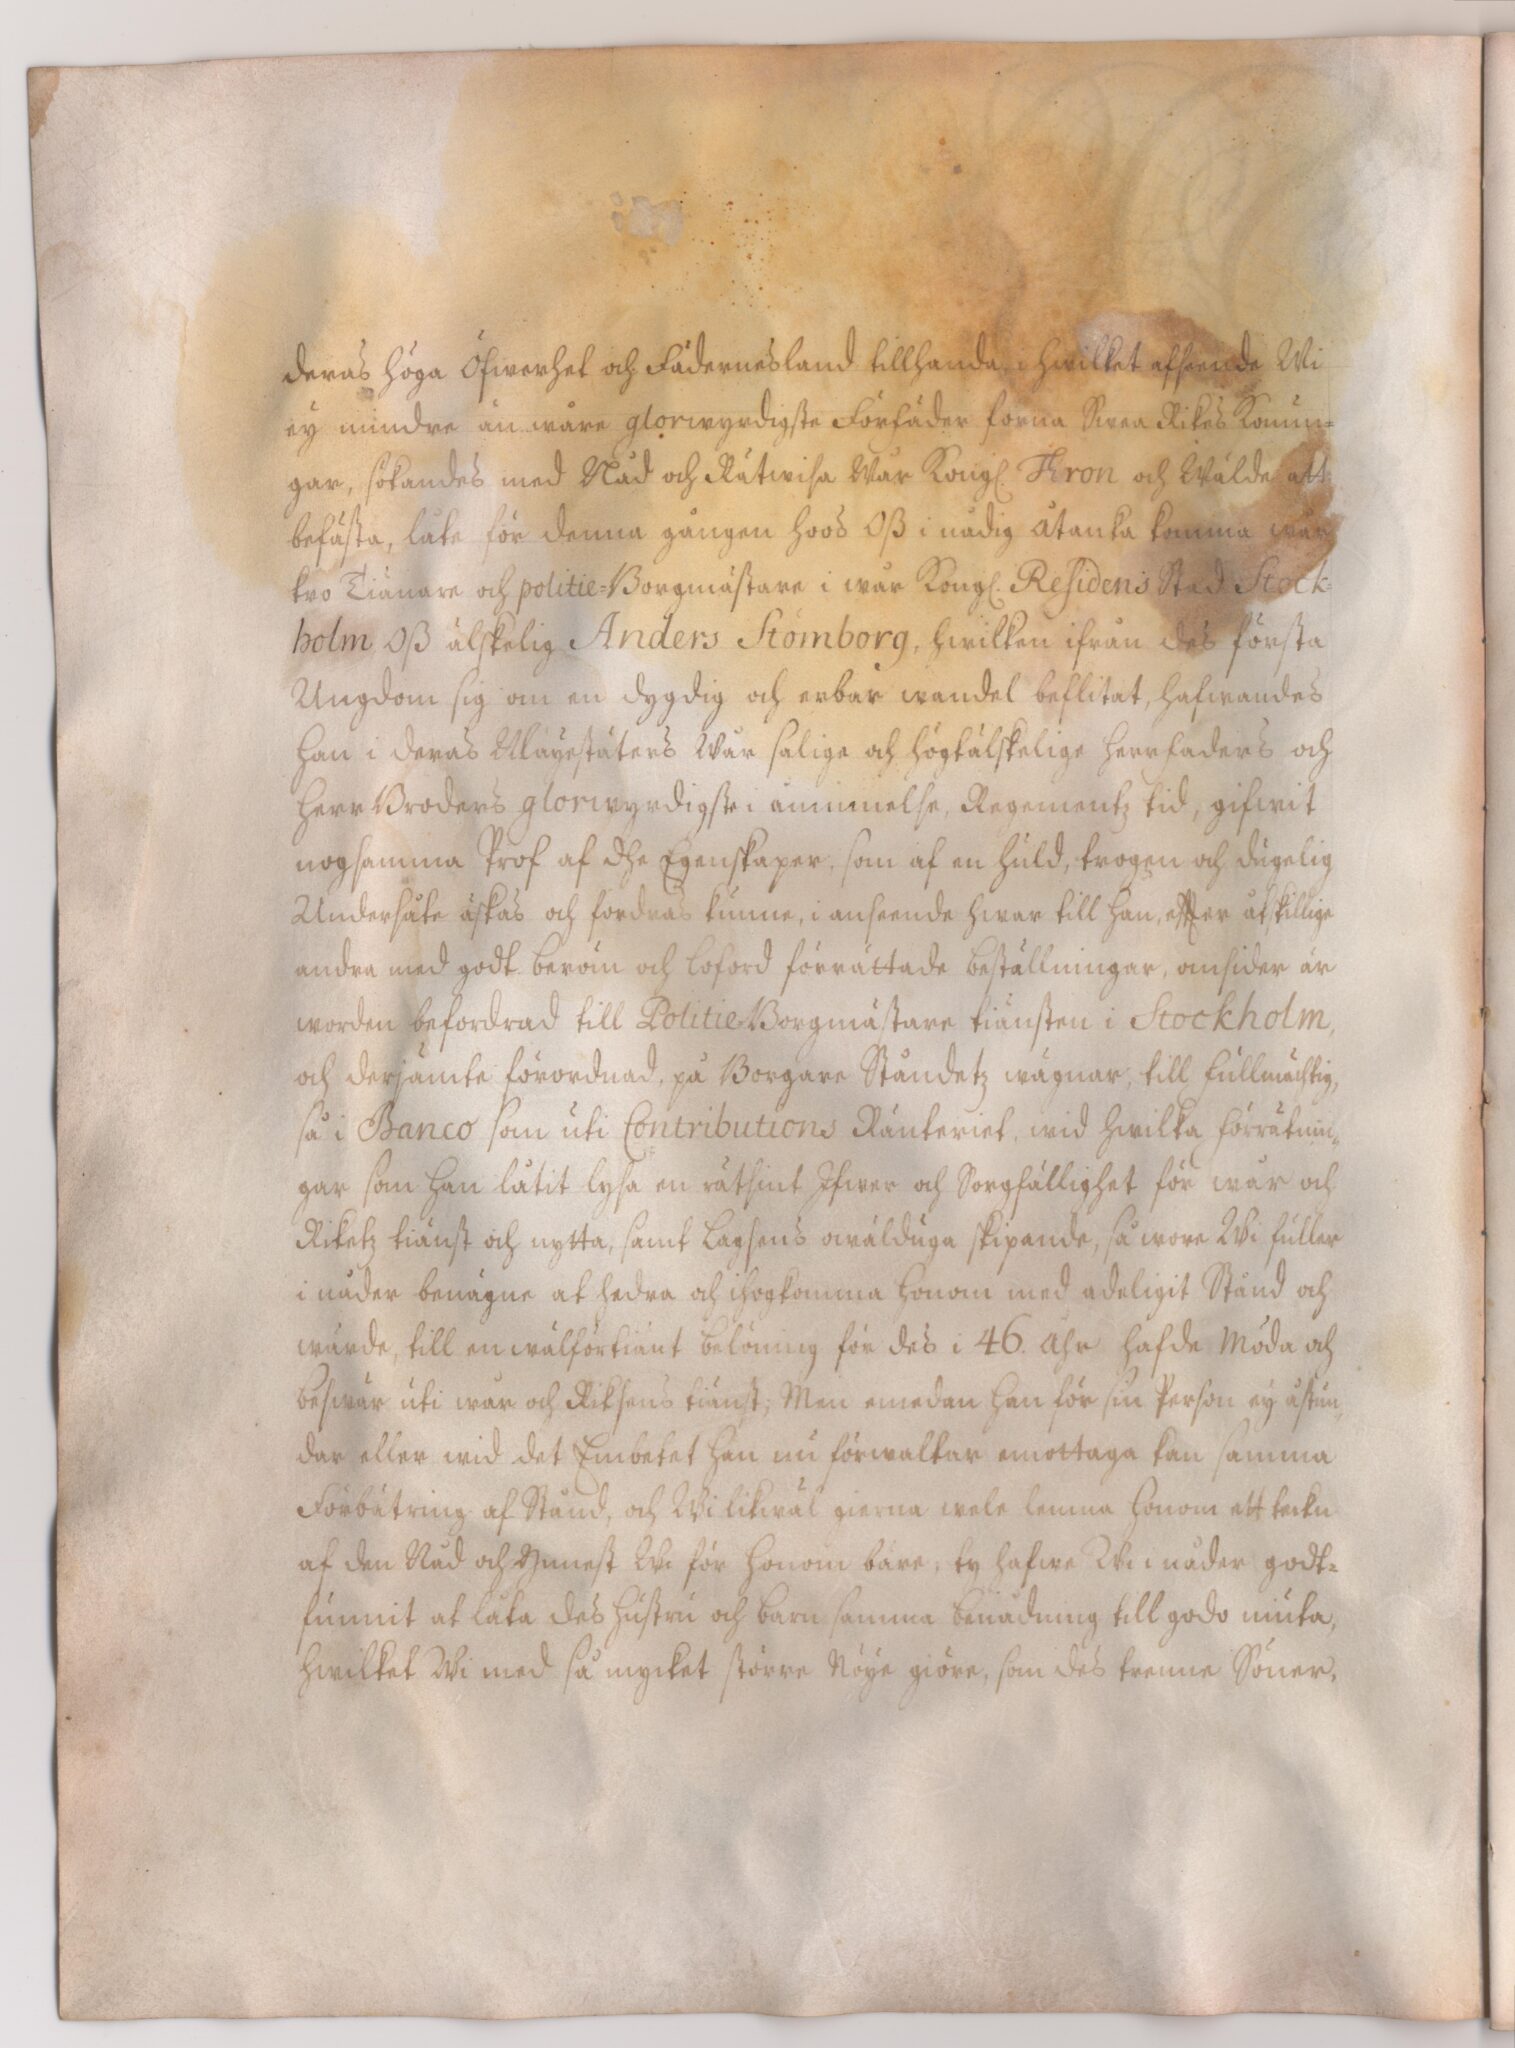 deras höga Öfwerhet och Fädernesland tillhanda, i hwilket afseende Wi
ey mindre än wåre glorwyrdigste Förfäder forna Swea Rikes Konun-
gar, sökandes med Nåd och Rätwisa Wår Kongl. Thron och Wälde att
befästa, låte för denna gången hoos Oß i nådig åtanka komma wår
tro Tiänare och politie-Borgmästare i wår Kongl. Residens Stad Stock-
holm Oß älskelig Anders Stömborg, hwilken ifrån des första
Ungdom sig om en dygdig och erbar wandel beflitat, hafwandes
han i deras Mayestäters Wår salige och högtälskelige herrfaders och
herr Broders glorwyrdigst i åminnelse, Regementz tid, gifwit
nogsamma Prof af dhe Egenskaper, som af en huld, trogen och dugelig
Undersåte äskas och fordras kunne, i anseende hwar till han, effter åtskillige
andra med godt beröm och loford förrättade beställningar, omsider är
worden befordrad till Politie Borgmästare tiänsten i Stockholm,
och derjämte förordnad, på Borgare Ståndetz wägnar, till fullmächtig,
så i Banco som uti Contributions Ränteriet, wid hwilka förrätnin-
gar som han låtit lysa en rätsint Ifwer och Sorgfällighet för wår och
Riketz tiänst och nytta, samt Lagsens owälduga skipande, så wore Wi fuller
i nåder benägne at hedra och ihogkomma honom med adeligit Stånd och
wärde, till en wälförtiänt belöning för des i 46. åhr hafde Möda och
beswär uti wår och Riksens tiänst; Men emedan han för sin Person ey åstun-
dar eller wid det Embetet han nu förwaltar emottaga kan samma
Förbätring af Stånd, och Wi likwäl gierna wele lemna honom ett teckn
af den Nåd och Ynnest Wi för honom bäre, ty hafwe Wi i nåder godt-
funnit at låta des hustru och barn samma benådning till godo niuta,
hwilket Wi med så mycket större Nöye giöre, som des trenne Söner,